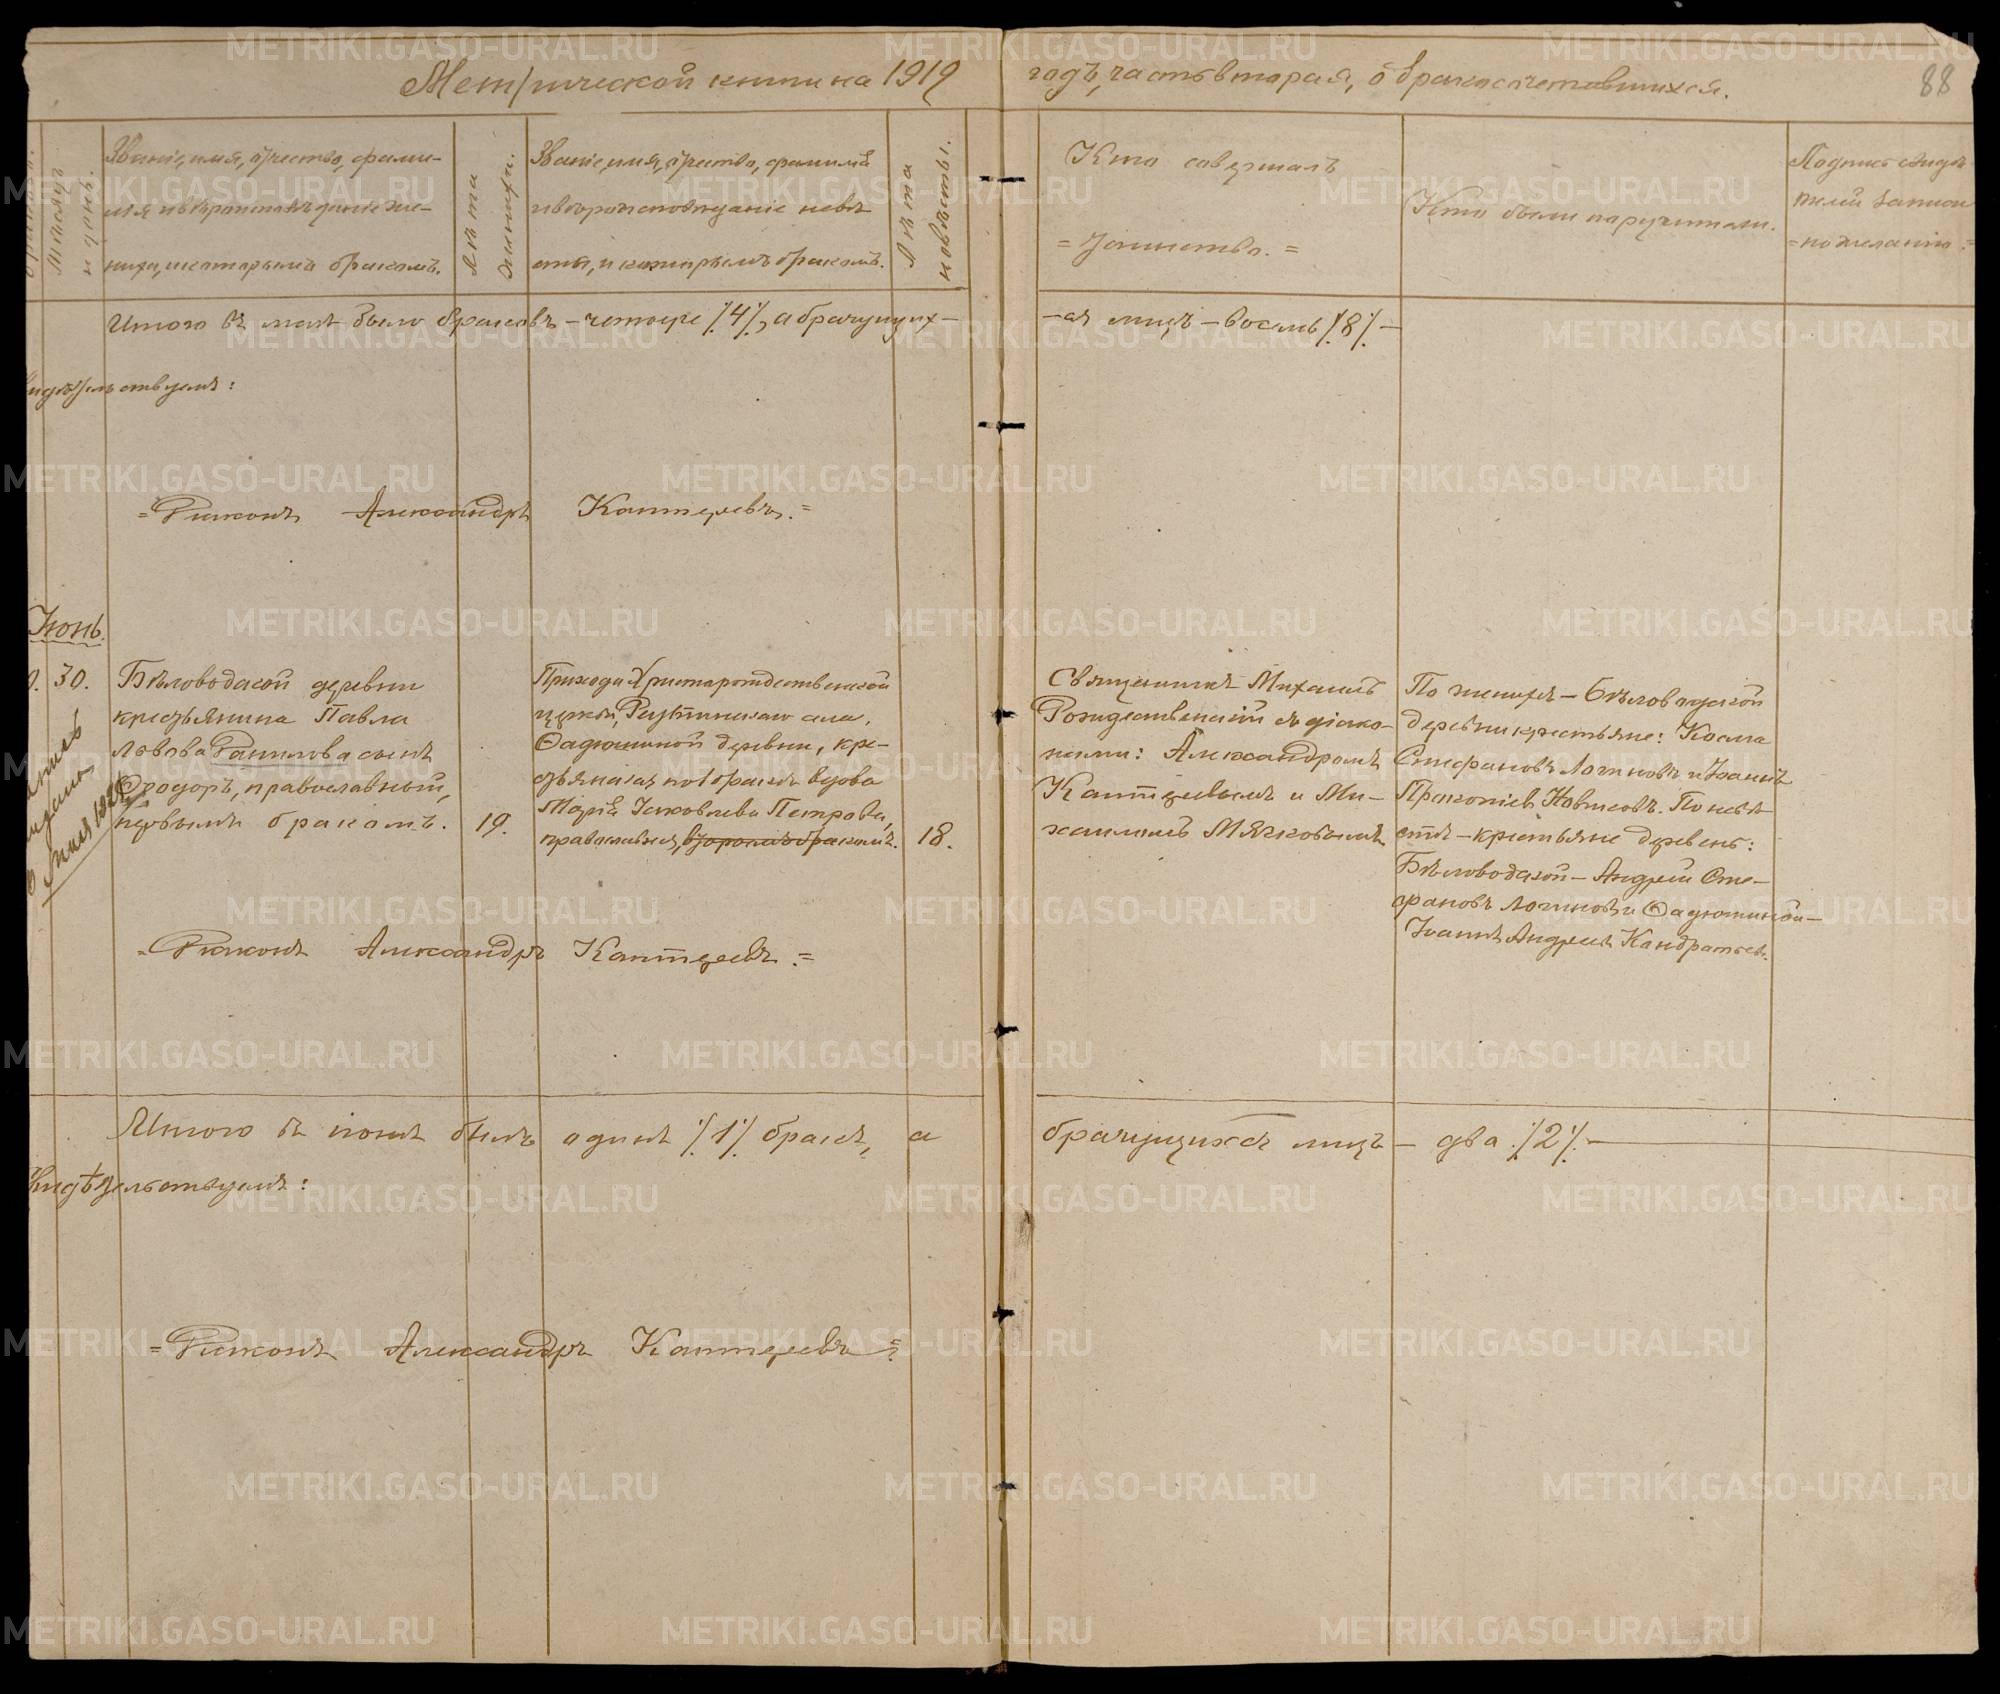 Метрической книги на 1919 годъ, часть вторая, о бракосочетавшихся.
88
Мѣсяцъ и день.
Званіе, имя, отчество, фами-
лія и вѣроисповѣданіе же-
ниха, и которымъ бракомъ.
Лѣта жениха.
Званіе, имя, отчество, фамилія
и вѣроисповѣданіе невѣ-
сты, и которымъ бракомъ.
Лѣта невѣсты.
Кто совершалъ
= Таинство. =
Кто были поручители.
Подпись свидѣ-
телей записи
= по желанію =
Итого въ маѣ было браковъ - четыре /4/, а брачущих-
-ся лицъ - восемь /8/ -
видѣтельствуемъ:
= Диаконъ Александръ Каптеревъ. =
Іюнь.
30.
Бѣловодской деревни
крестьянина Павла
Львова Данилова сынъ
Ѳеодоръ, православный,
первымъ бракомъ.
19.
Прихода Христорождественской
церкви, села,
Ѳадюшиной деревни, кре-
стьянская по 1 бракѣ вдова
Марія Іаковлева Петрова,
православная, вторымъ бракомъ.
18.
Священникъ Михаилъ
Рождественскій съ діако-
нами: Александромъ
Каптеревымъ и Ми-
хаиломъ Мячковымъ
По женихѣ - Бѣловодской
деревни крестьяне: Косма
Стефановъ Логиновъ и Іоаннъ
Прокопіевъ Новиковъ. По невѣ-
стѣ - крестьяне деревень:
Бѣловодской - Андрей Сте-
фановъ Логиновъ и Ѳадюшиной -
Іоаннъ Андреевъ Кондратьев.
= Диаконъ Александръ Каптеревъ. =
Итого въ іюнѣ былъ одинъ /1/ бракъ, а
брачущихся лицъ - два /2/. -
видѣтельствуемъ:
= Диаконъ Александръ Каптеревъ =
METRIKI.GASO-URAL.RU